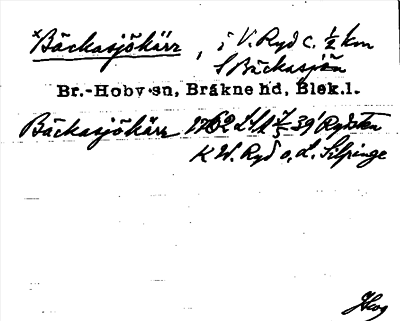 ×Bäckasjökärr, i V. Ryd c. ½ km
S Bäckasjön
Br.-Hoby sn, Bräkne hd, Blek.l.
Bäckasjökärr 1762 Ryds
K W. Ryd o. L. Silpinge